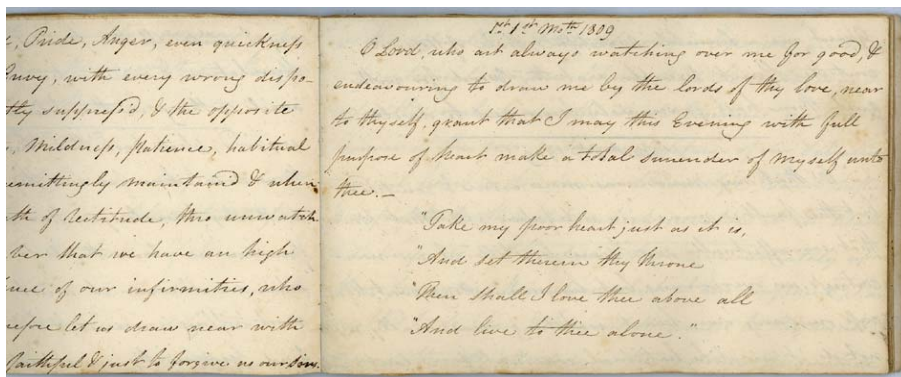 Pride, Anger, even quickness
Envy, with every wrong dispo-
suppress'd, & the opposite
Mildness, Patience, habitual
maintain'd & when
of rectitude, thro unwatch
that we have an high
of our infirmities, who
let us draw near with
faithful & just to forgive us our sins.
1st Moth 1809
O Lord, who art always watching over me for good, &
endeavouring to draw me by the lords of thy love, near
to thyself, grant that I may this Evening with full
purpose of heart make a total surrender of myself unto
thee. —
"Take my poor heart just as it is,
"And set therein thy throne
"Then shall I love thee above all
"And live to thee alone."